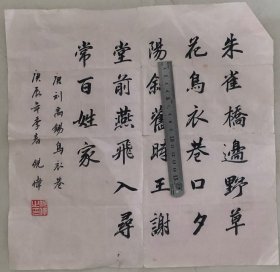 朱雀橋邊野草
花烏衣巷口夕
陽斜舊時王謝
堂前燕飛入尋
常百姓家
唐刘禹錫烏衣巷
庚辰年季春